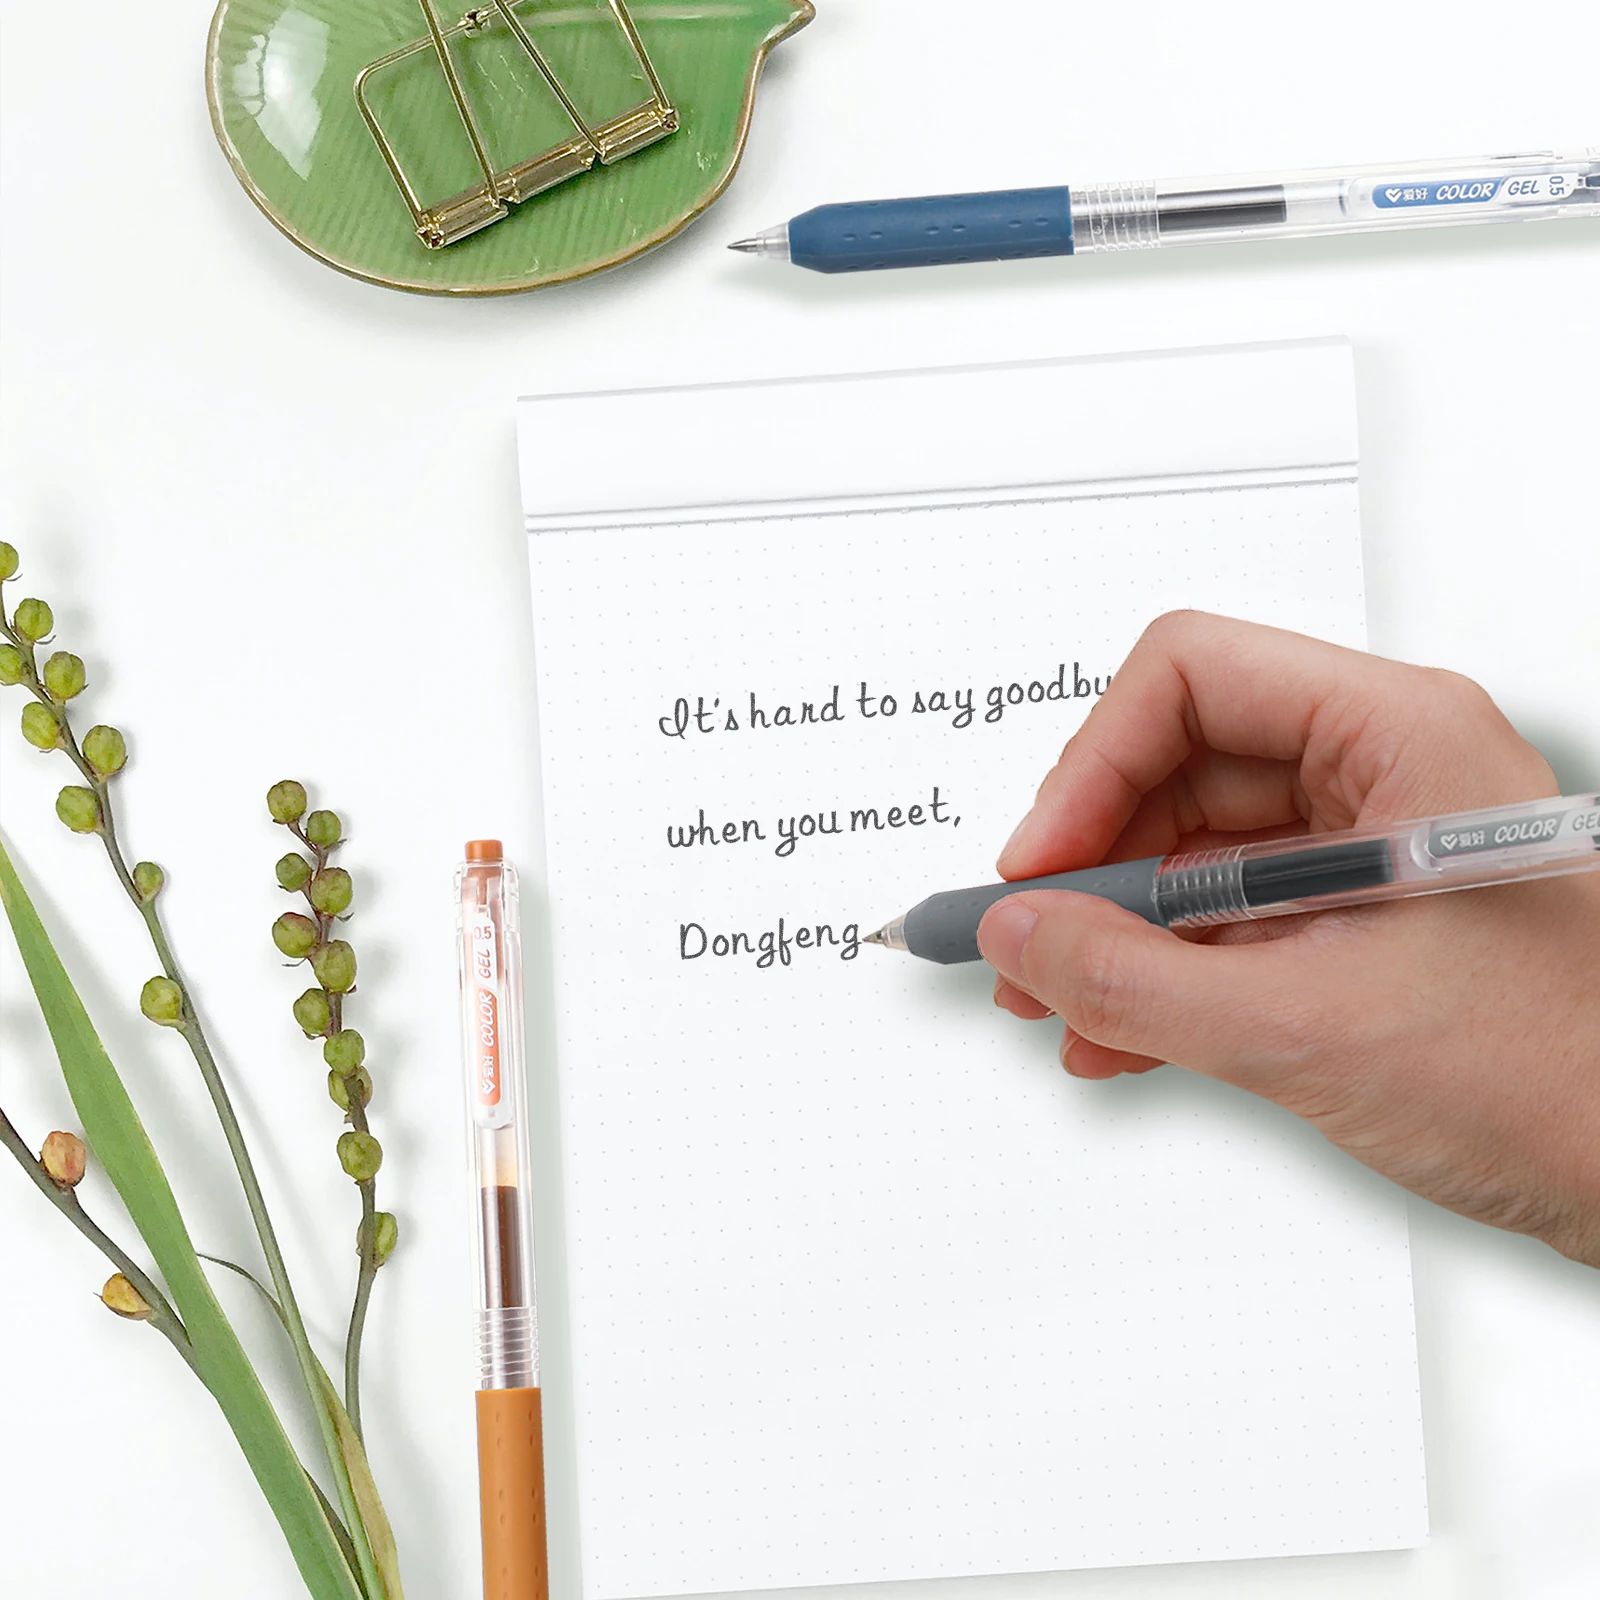 爱好 COLOR GEL 0.5
It's hard to say goodby
when you meet,
爱好 COLOR GEL
Dongfeng
爱好 COLOR GEL 0.5